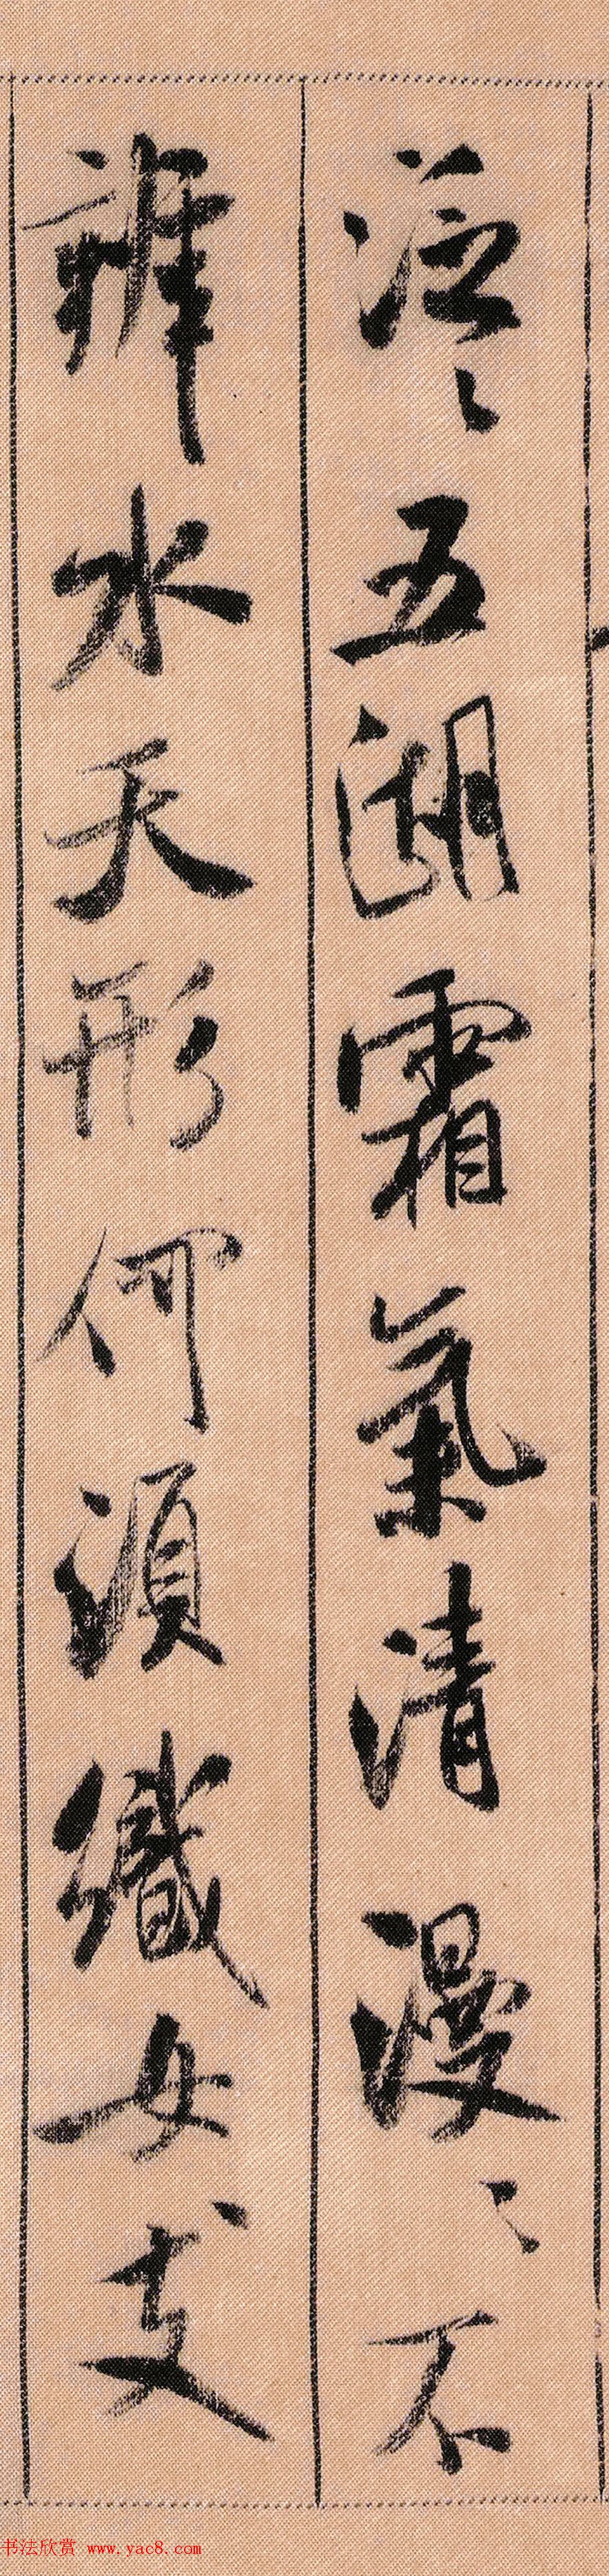 泛〻五湖霜氣清漫〻不
辨水天形何須織女支
书法欣赏 www.yac8.com